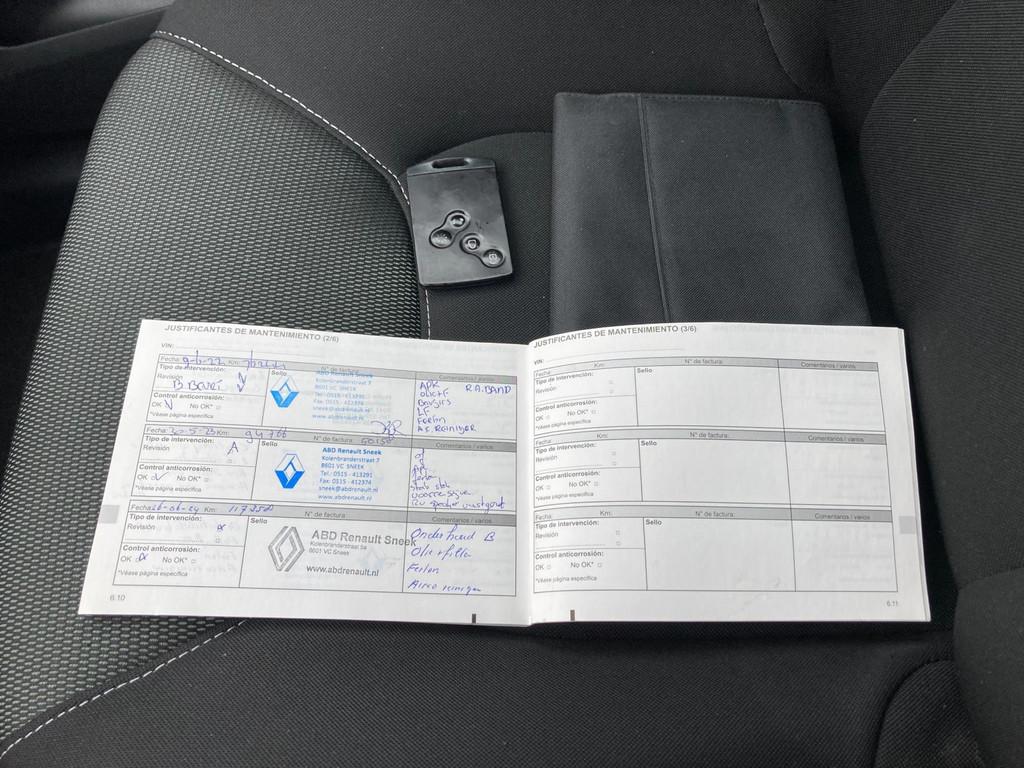 JUSTIFICANTES DE MANTENIMIENTO (2/6)
VIN:
Fecha: Km: N° de factura:
Tipo de intervención: Sello Comentarios / varios
Revisión
B. Beurt
Control anticorrosión:
OK No OK*
*Véase página específica
ABD Renault Sneek
Kolenbranderstraat 7
8601 VC SNEEK
Tel.: 0515 - 413291
Fax: 0515 - 412374
sneek@abdrenault.nl
www.abdrenault.nl
APK R.A.BAND
Bougies
LF
Ferlon
Fecha: Km: 94766 N° de factura:
Tipo de intervención: Sello Comentarios / varios
Revisión A
Control anticorrosión:
OK No OK*
*Véase página específica
ABD Renault Sneek
Kolenbranderstraat 7
8601 VC SNEEK
Tel.: 0515 - 413291
Fax: 0515 - 412374
sneek@abdrenault.nl
www.abdrenault.nl
Fecha: Km: N° de factura:
Tipo de intervención: Sello Comentarios / varios
Revisión
Control anticorrosión:
OK No OK*
*Véase página específica
ABD Renault Sneek
Kolenbranderstraat 7
8601 VC Sneek
www.abdrenault.nl
Onderhoud B
Oliefilter
Ferlon
Airco reiniger
6.10
JUSTIFICANTES DE MANTENIMIENTO (3/6)
VIN:
Fecha: Km: N° de factura: Comentarios / varios
Tipo de intervención: Sello
Revisión
Control anticorrosión:
OK No OK*
*Véase página específica
Fecha: Km: N° de factura: Comentarios / varios
Tipo de intervención: Sello
Revisión
Control anticorrosión:
OK No OK*
*Véase página específica
Fecha: Km: N° de factura: Comentarios / varios
Tipo de intervención: Sello
Revisión
Control anticorrosión:
OK No OK*
*Véase página específica
6.11